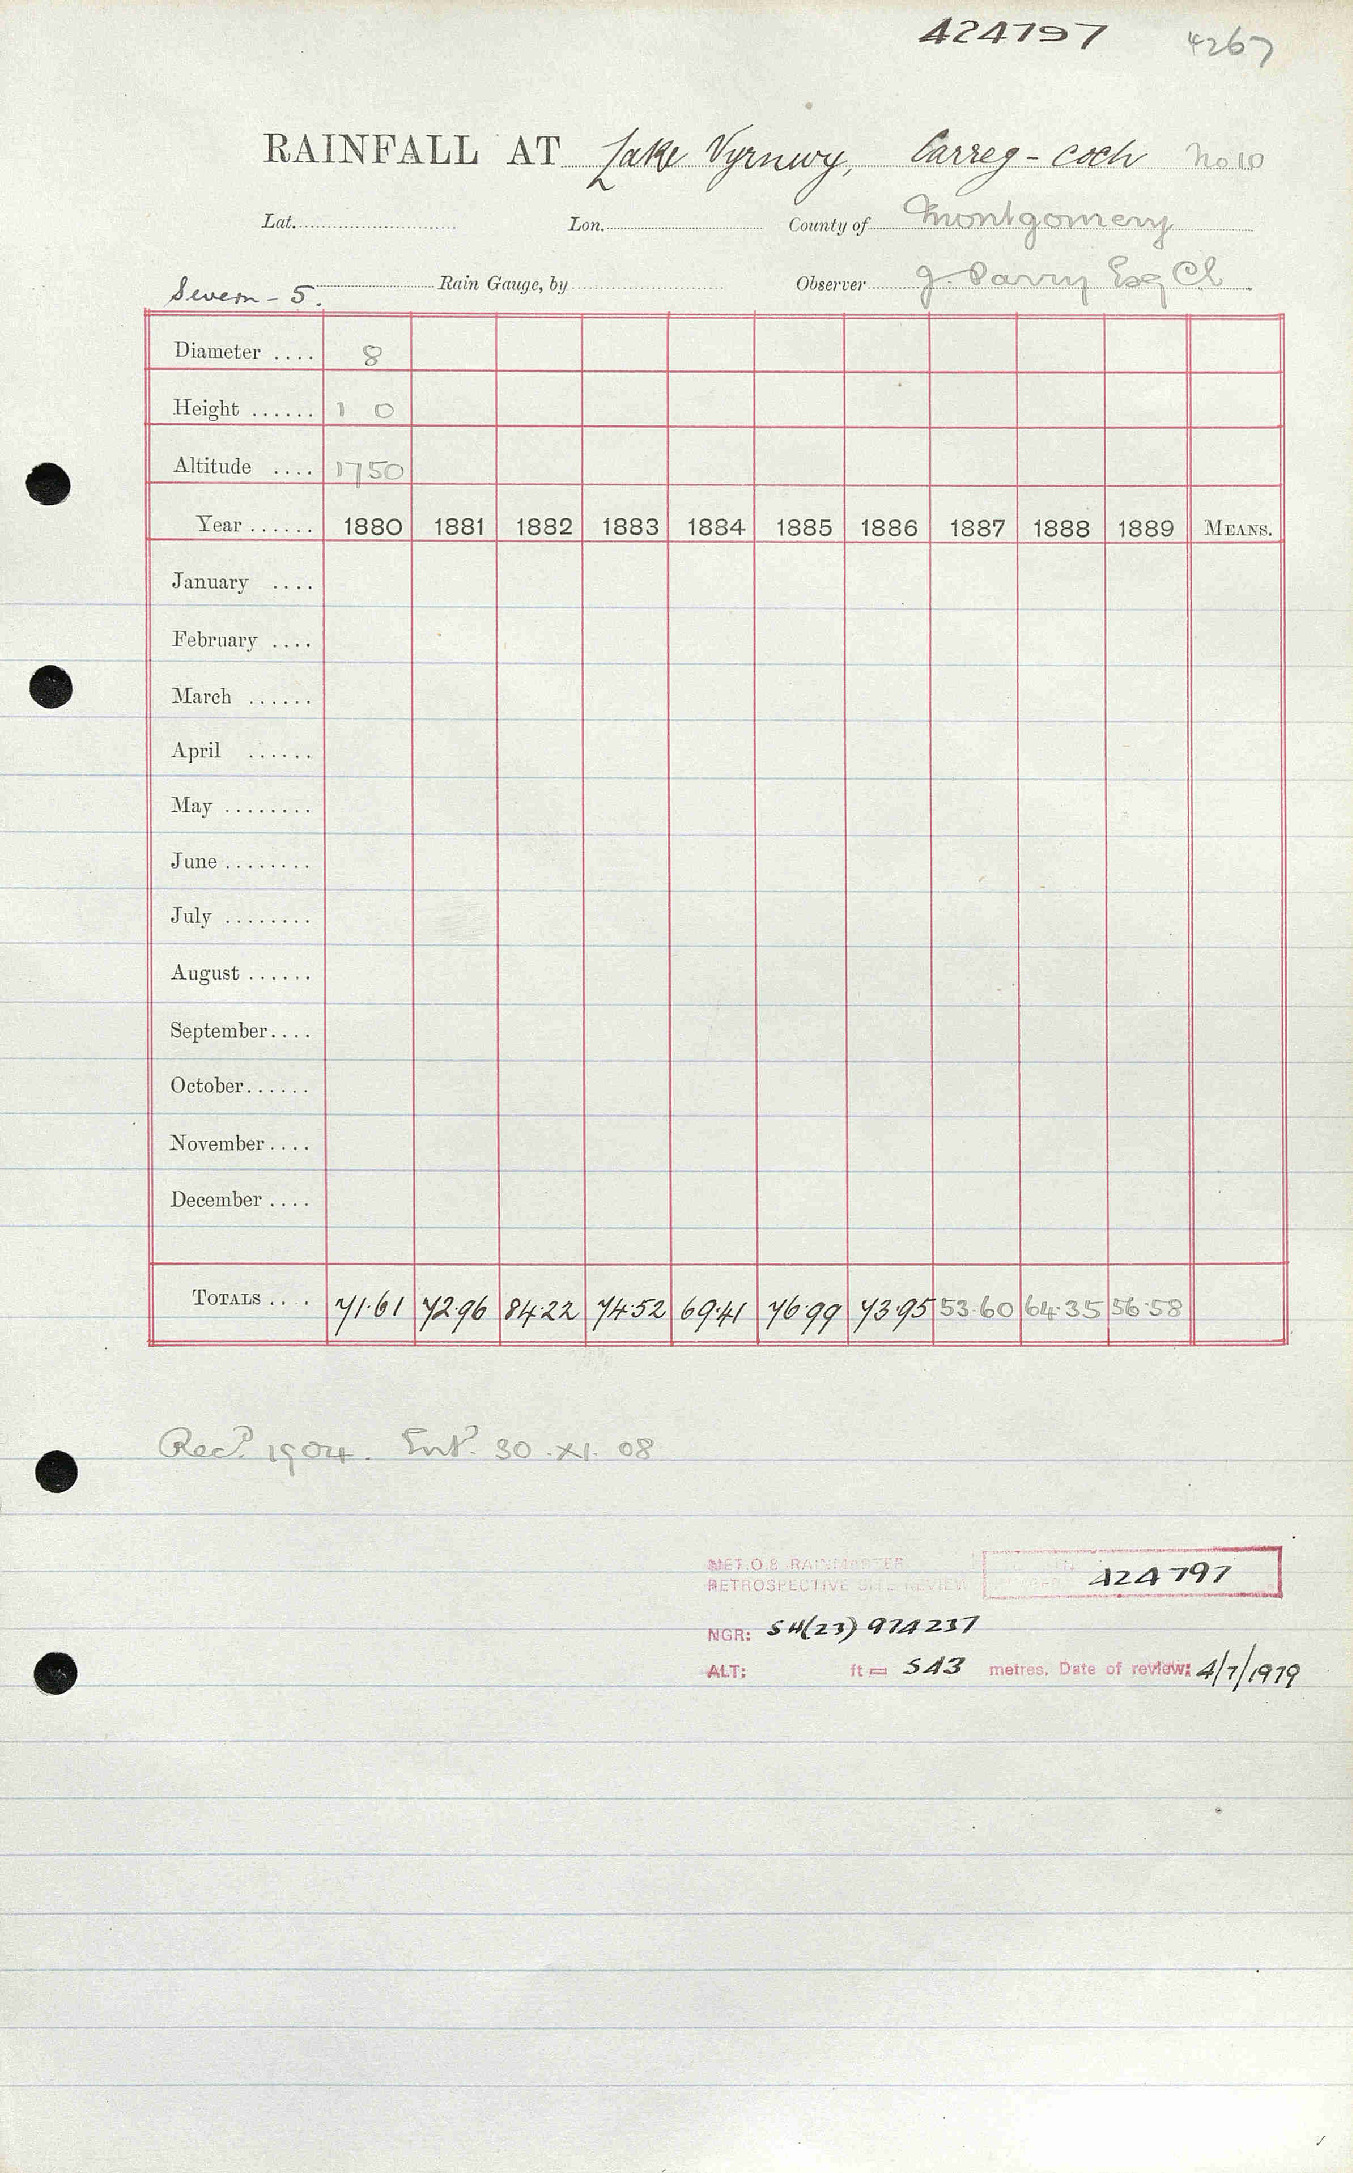 424797 4267
RAINFALL AT Lake Vyrnwy, Carreg-coch No 10
Lat. Lon. County of Montgomery
Severn - 5. Rain Gauge, by Observer J. Parry Esq CE
Diameter .... 8
Height ...... 1 0
Altitude .... 1750
Year ...... 1880 1881 1882 1883 1884 1885 1886 1887 1888 1889 MEANS.
January ....
February ....
March ......
April ......
May ........
June ........
July ........
August ......
September....
October......
November ....
December ....
TOTALS .. . 71·61 72·96 84·22 74·52 69·41 76·99 73·95 53·60 64·35 56·58
Recd. 1904. Entd. 30. XI. 08
MET.O.8 RAINMASTER
RETROSPECTIVE SITE REVIEW 424797
NGR: SH(23) 974237
ALT: ft = 543 metres. Date of review: 4/7/1979